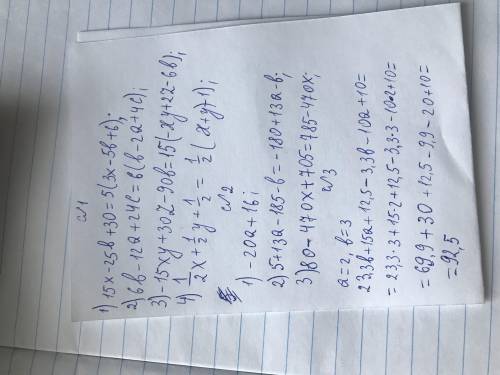 №1
1) 15x-25в+30=5(3x-5в+6);
2) 6в-12а+24с=6(в-2а+4с);
3) -15xy+30х-90в=15(-xy+2x-6в);
4) 1/2x+1/2y+1/2=1/2(x+y+1);
№2
1) -20а+16;
2) 5+13а-185-в=-180+13а-в;
3) 80-470x+705=785-470x;
№3
а=2, в=3
23,3в+15а+12,5-3,3в-10а+10=
=23,3·3+15·2+12,5-3,3·3-10·2+10=
=69,9+30+12,5-9,9-20+10=
=92,5